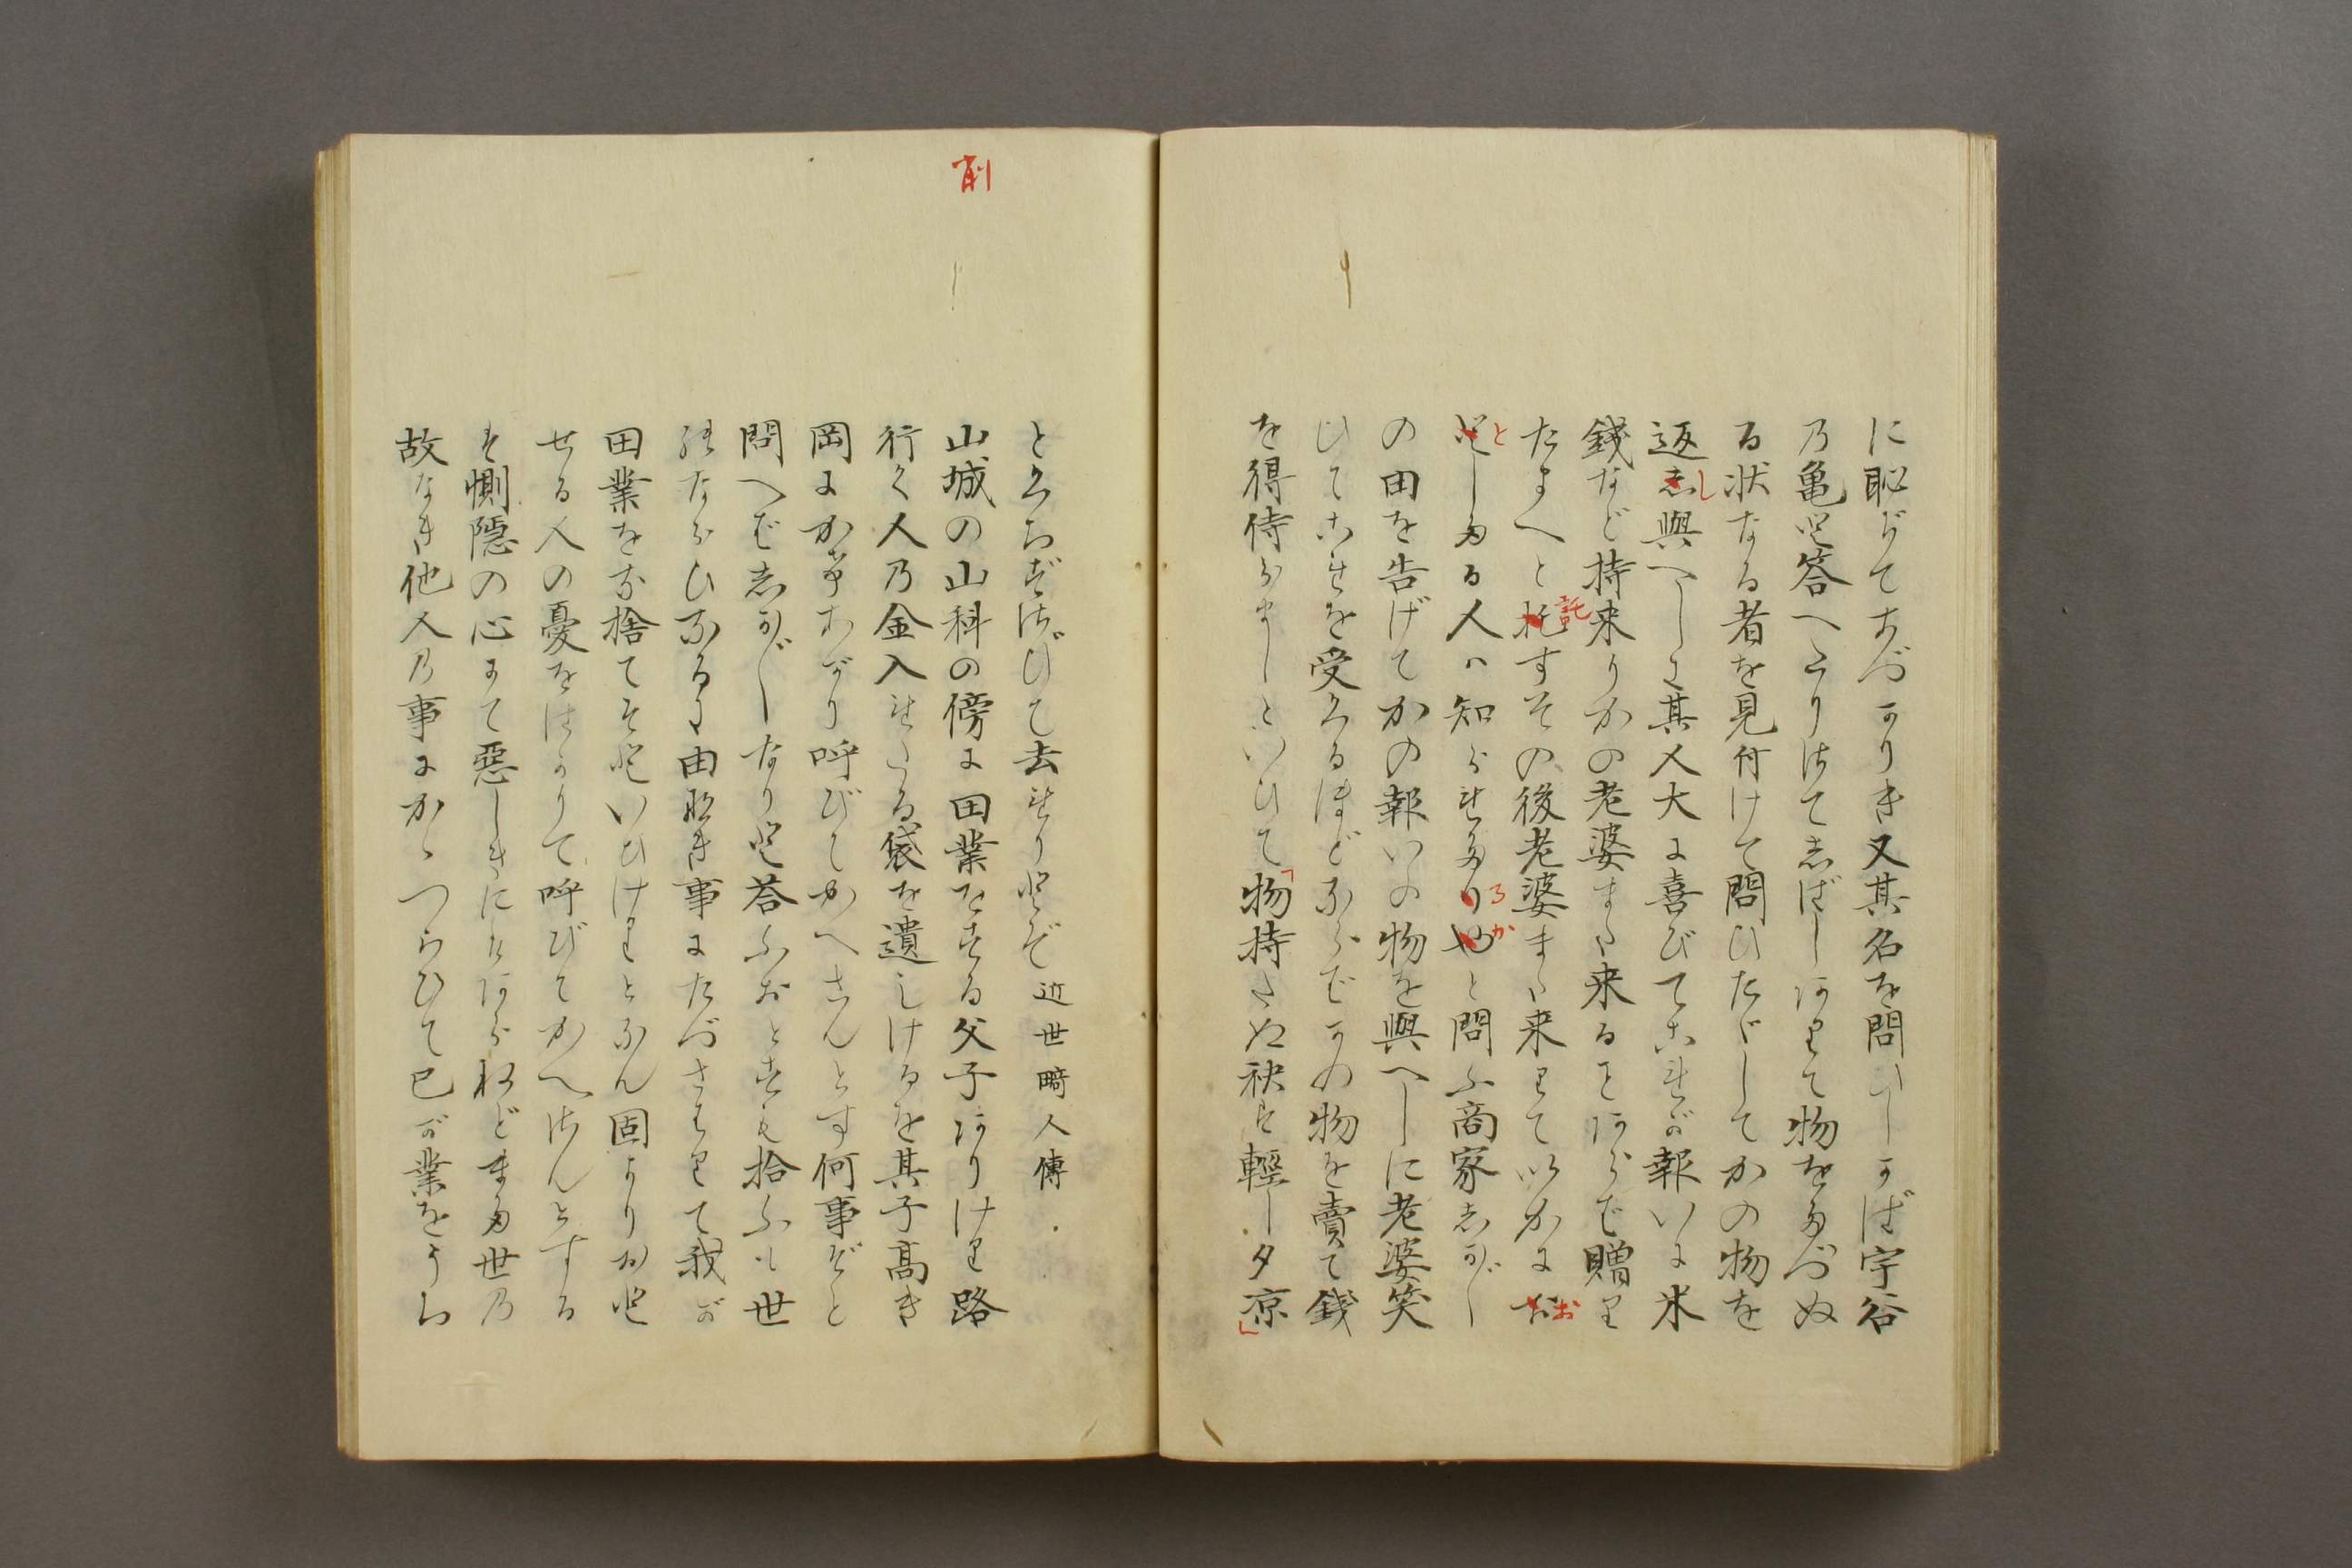 に恥ぢてあづかりき又其名を問ひしかば宇谷
の亀と答へたりけてしばしありて物をたづぬ
る状なる者を見付けて問ひたゞしてかの物を
返し與へしに其人大に喜びてこれが報いに米
銭など持来りかの老婆また来ることあらば贈り
たまへと托すその後老婆また来りていかにお
託
お
としたる人は知られたりやと問ふ商家しか〴〵
と
るか
の由を告げてかの報いの物を與へしに老婆笑
ひてこれを受くるほどならばかの物を賣て銭
を得侍らましといひて「物持たぬ袂は輕し夕涼」
とくちずさびて去れりとぞ 近世畸人傳
削
山城の山科の傍に田業をする父子ありけり路
行く人の金入れたる袋を遺しけるを其子高き
岡にかけあがり呼びてかへさんとす何事ぞと
問へばしか〴〵なりと答ふおとすも拾ふも世
のならひなるに由なき事にたづさはりて我が
田業をな捨てそといひけりとなん固よりおと
せる人の憂をはかりて呼びてかへさんとする
は惻隠の心にて惡しきにはあらねどまた世の
故なき他人の事にかゝづらひて己が業をうち